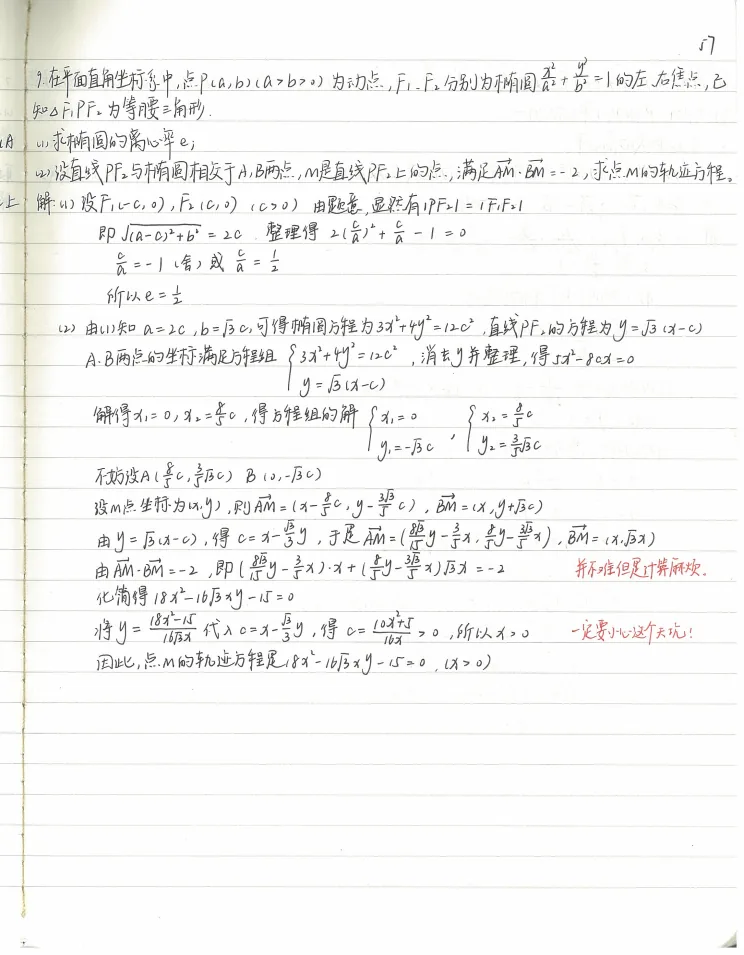 57
9.在平面直角坐标系中,点P(a,b)(a>b>0)为动点,F₁、F₂分别为椭圆x²/a²+y²/b²=1的左、右焦点,已
知△F₁PF₂为等腰三角形.
(1)求椭圆的离心率e;
(2)设直线PF₂与椭圆相交于A,B两点,M是直线PF₂上的点,满足AM→·BM→=-2,求点M的轨迹方程。
解:(1)设F₁(-c,0),F₂(c,0) (c>0) 由题意,显然有|PF₂|=|F₁F₂|
即√((a-c)²+b²)=2c 整理得 2(c/a)²+c/a-1=0
c/a=-1(舍)或c/a=1/2
所以e=1/2
(2)由(1)知a=2c,b=√3c,可得椭圆方程为3x²+4y²=12c²,直线PF₂的方程为y=√3(x-c)
A.B两点的坐标满足方程组{3x²+4y²=12c², y=√3(x-c) ,消去y并整理,得5x²-8cx=0
解得x₁=0,x₂=8/5c,得方程组的解{x₁=0, y₁=-√3c ,{x₂=8/5c, y₂=3/5√3c
不妨设A(8/5c,3/5√3c) B(0,-√3c)
设M点坐标为(x,y),则AM→=(x-8/5c,y-3√3/5c),BM→=(x,y+√3c)
由y=√3(x-c),得c=x-√3/3y,于是AM→=(8√3/15y-3/5x,8/5y-3√3/5x),BM→=(x,√3x)
由AM→·BM→=-2,即(8√3/15y-3/5x)·x+(8/5y-3√3/5x)√3x=-2 并不难但是计算麻烦.
化简得18x²-16√3xy-15=0
将y=(18x²-15)/(16√3x)代入c=x-√3/3y,得c=(10x²+5)/(16x)>0,所以x>0 一定要小心这个天坑!
因此,点M的轨迹方程是18x²-16√3xy-15=0.(x>0)